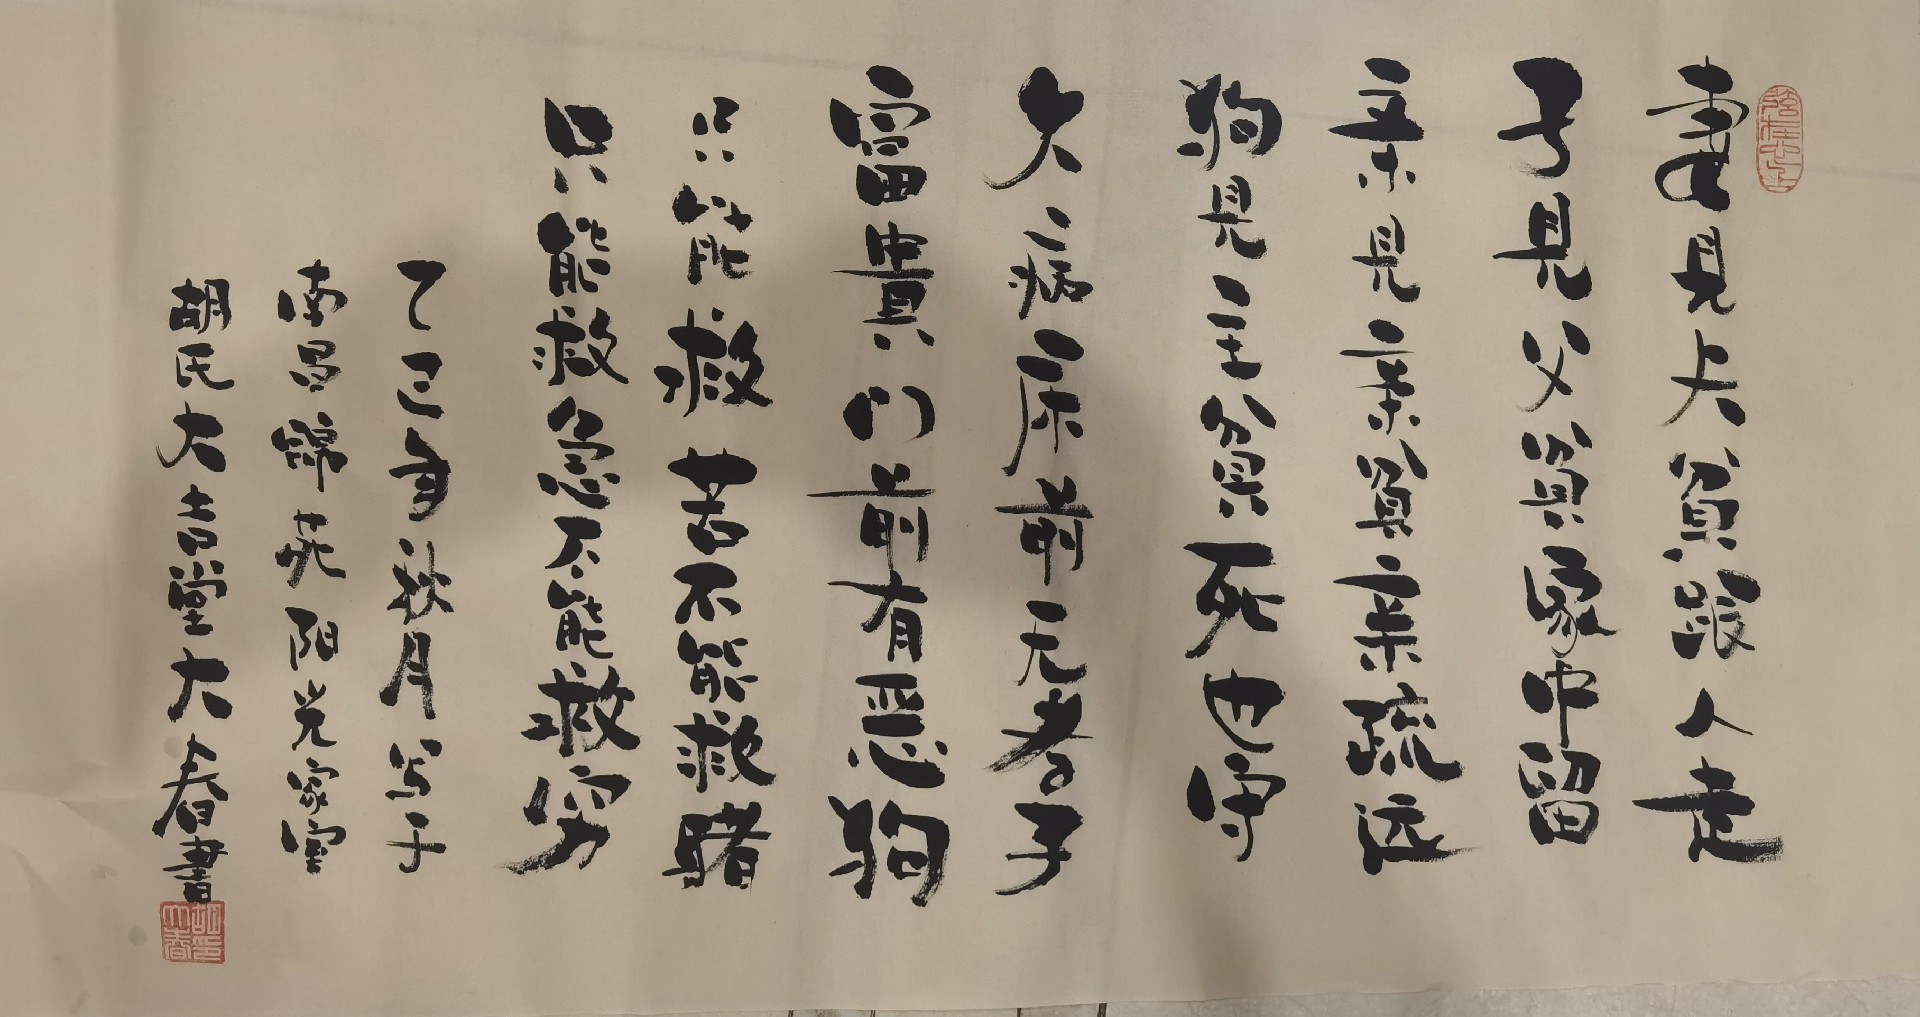 妻見夫貧跟人走
子見父貧家中留
亲見亲貧亲疏远
狗見主貧死也守
久病床前无孝子
富貴门前有恶狗
只能救苦不能救賭
只能救急不能救穷
乙巳年秋月写于
南昌锦苑阳光家室
胡氏大吉堂大春書